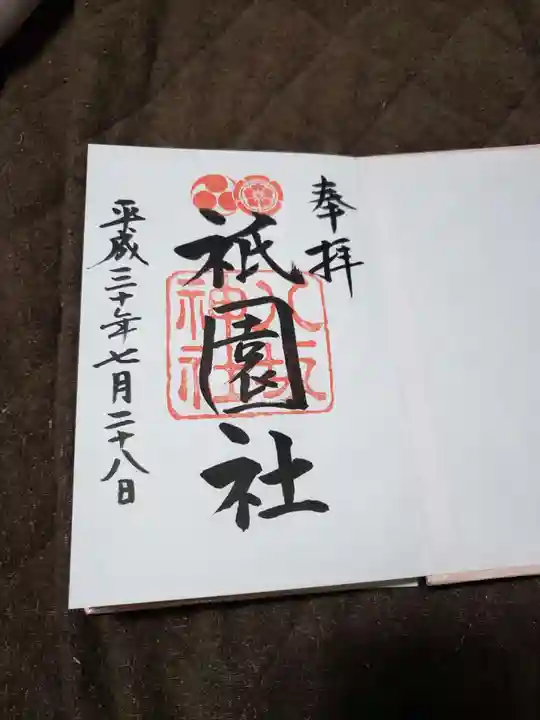 奉拝
祇園社
八坂神社
平成三十年七月二十八日